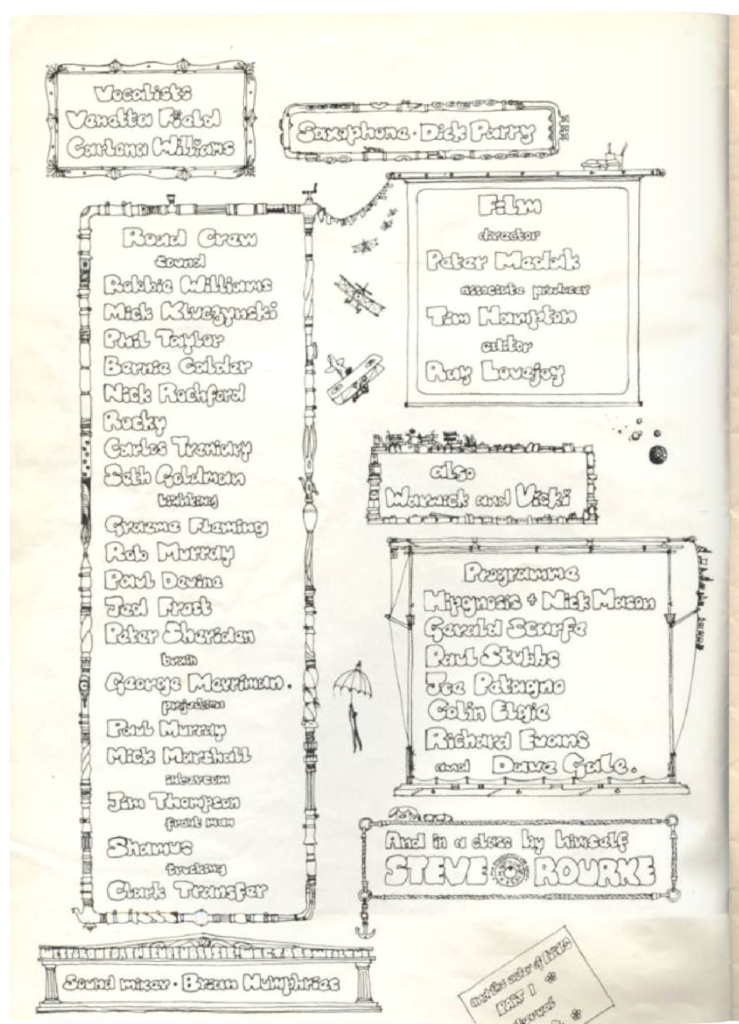 Vocalists
Venetta Field
Carlena Williams
Saxaphone · Dick Parry
Road Crew
sound
Robbie Williams
Mick Kluczynski
Phil Taylor
Bernie Calder
Nick Rochford
Rocky
Carlos Trenidry
Seth Goldman
lighting
Graeme Fleming
Rob Murray
Paul Devine
Jed Frost
Peter Sheridan
brain
George Merriman.
projection
Paul Murray
Mick Marshall
intercom
Jim Thompson
front man
Shamus
trucking
Clark Transfer
Sound mixer · Brian Humphries
Film
director
Peter Medak
associate producer
Tim Hampton
editor
Ray Lovejoy
also
Warwick and Vicki
Programme
Hipgnosis + Nick Mason
Gerald Scarfe
Paul Stubbs
Joe Petagno
Colin Elgie
Richard Evans
and Dave Gale.
And in a class by himself
STEVE O ROURKE
and the order of
PART 1